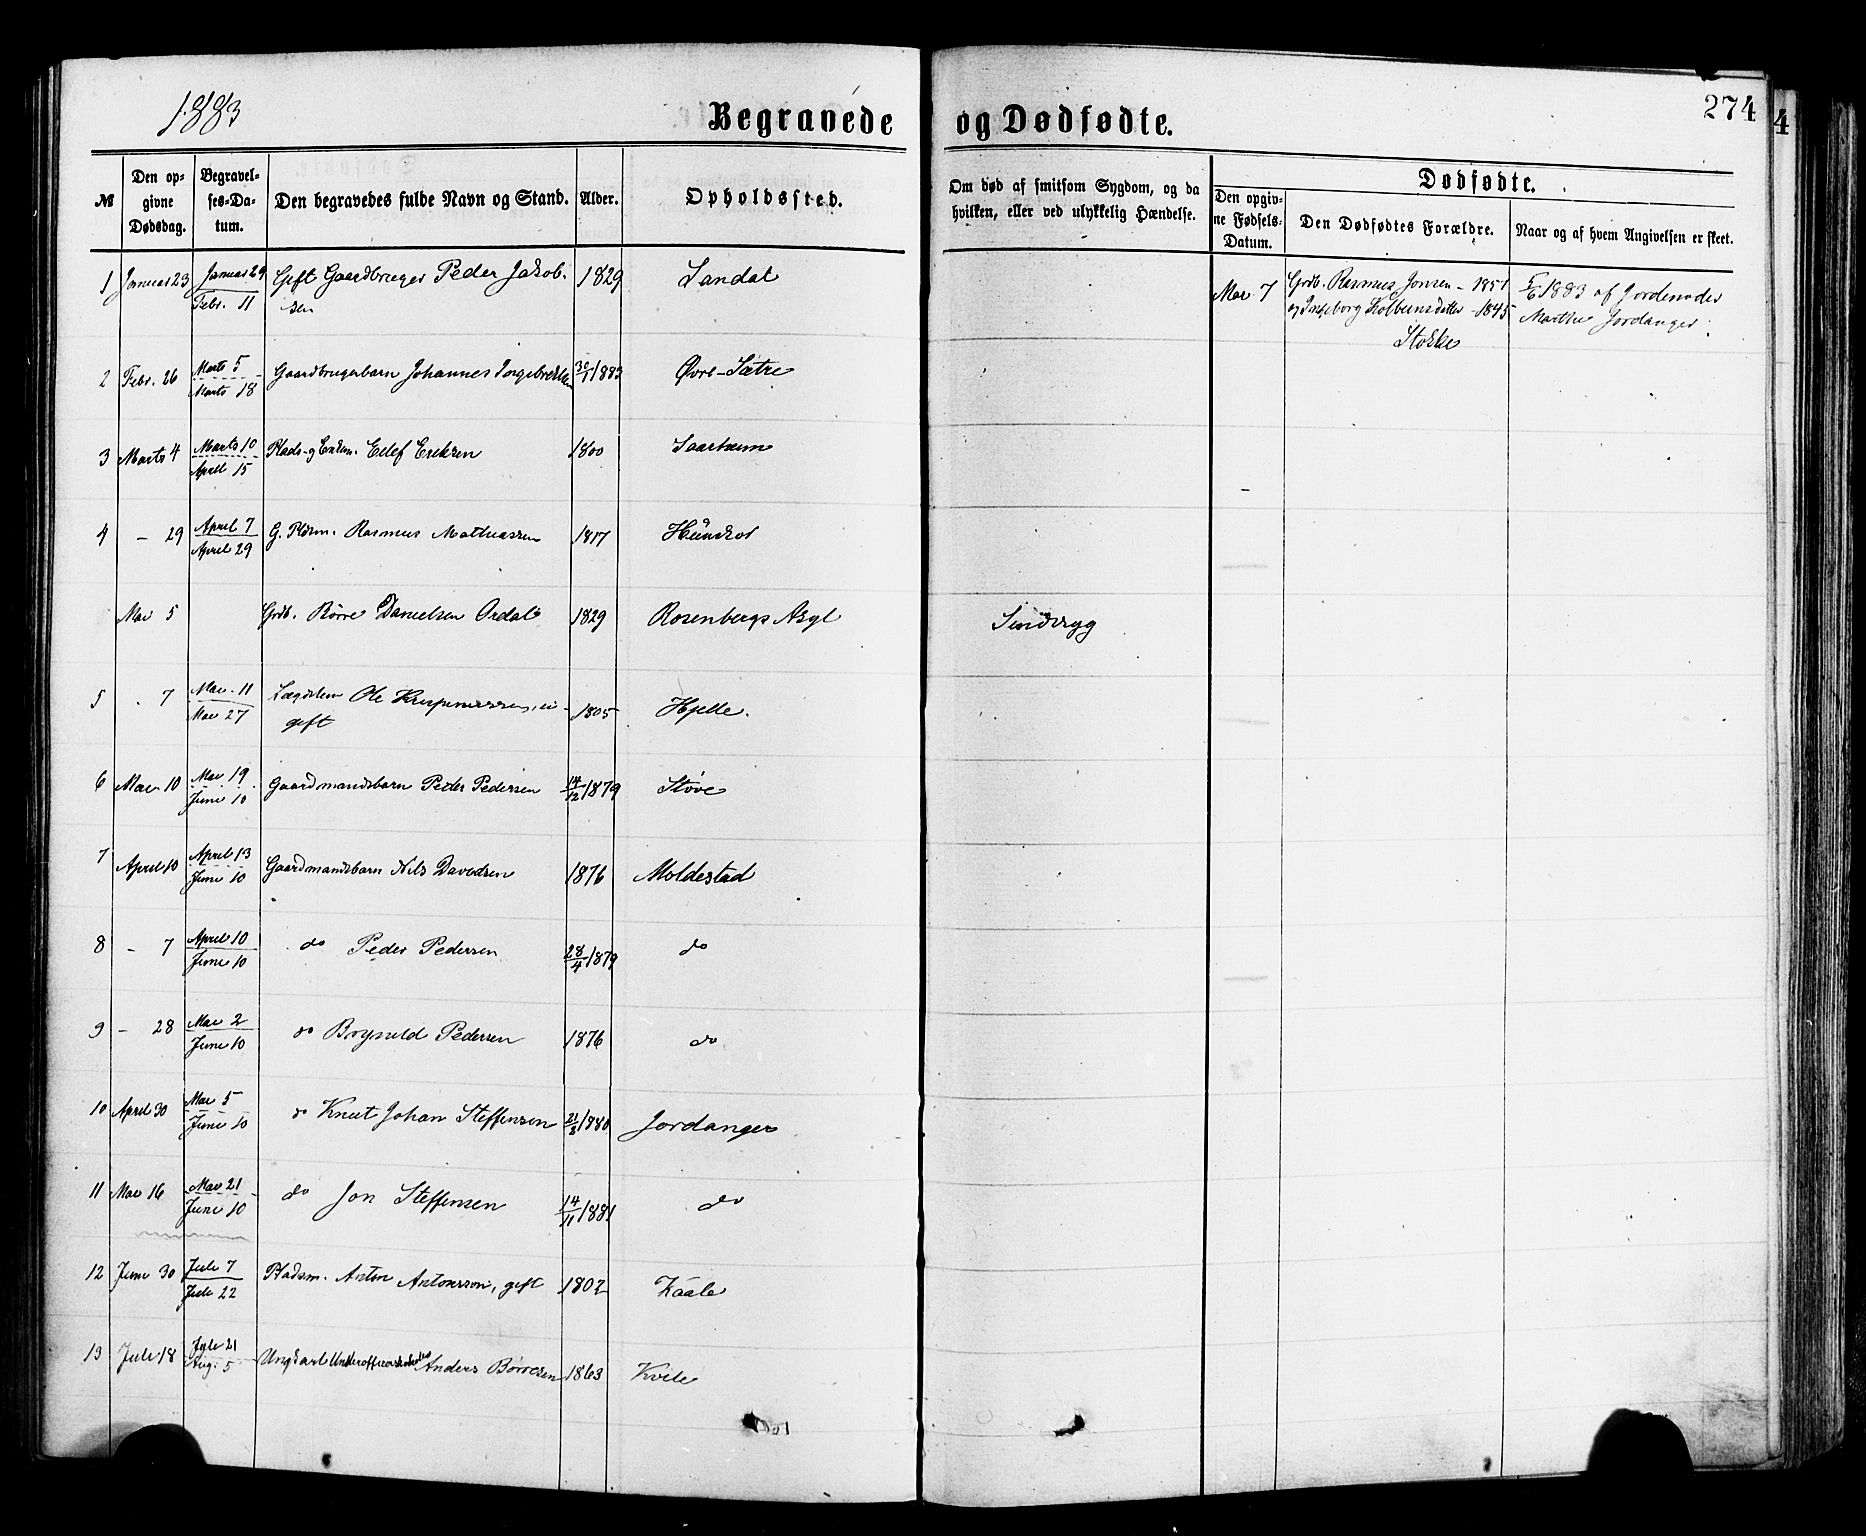 1883
Begravede og Dødfødte.
274
4
№ Den opgivne Dødsdag. Begravelses-Datum. Den begravedes fulde Navn og Stand. Alder. Opholdssted. Om død af smitsom Sygdom, og da hvilken, eller ved ulykkelig Hændelse. Dødfødte.
Den opgivne Fødsels-Datum. Den Dødfødtes Forældre. Naar og af hvem Angivelsen er skeet.
1 Januar 23 Januar 29 Gift Gaardbruger Peder Jakob- 1829 Sandal
Febr. 11 sen
Mai 7 Grdb. Rasmus Jonsen - 1851 1883 af Jordemoder
og Ingeborg Kolbeinsdatter - 1845 Marthe Jordanger.
2 Febr. 26 Marts 5 Gaardbrugerbarn Johannes Ingebretsen 30/1 1883 Øvre-Sætre
Marts 18
3 Marts 4 Marts 10 Plads- og Enkem. Elef Eriksen 1800 Saarheim
April 15
4 - 29 April 7 G. Pldsm. Rasmus Mathiassen 1817
April 29
Mai 5 Grdb. Børre Danielsen Ordal 1829 Rosenbergs Asyl Sindsyg
5 . 7 Mai 11 Lægdslem Ole ui- 1805 Hjelle.
Mai 27 gift
6 Mai 10 Mai 19 Gaardmandsbarn Peder Pedersen 14/12 1879 Støve
Juni 10
7 April 10 April 13 Gaardmandsbarn Nils Davidsen 1876 Moldestad
Juni 10
8 - 7 April 10 do Peder Pedersen 28/4 1879 do
Juni 10
9 - 28 Mai 2 do Brynild Pedersen 1876 do
Juni 10
10 April 30 Mai 5 do Knut Johan Steffensen 21/3 1880 Jordanger
Juni 10
11 Mai 16 Mai 21 do Jon Steffensen 14/11 1881 do
Juni 10
12 Juni 30 Juli 7 Pladsm. Anton Antonsson, gift 1802
Juli 22
13 Juli 18 Jyli 21 Ungkarl Anders Børresen 1863 Kvile
Aug. 5